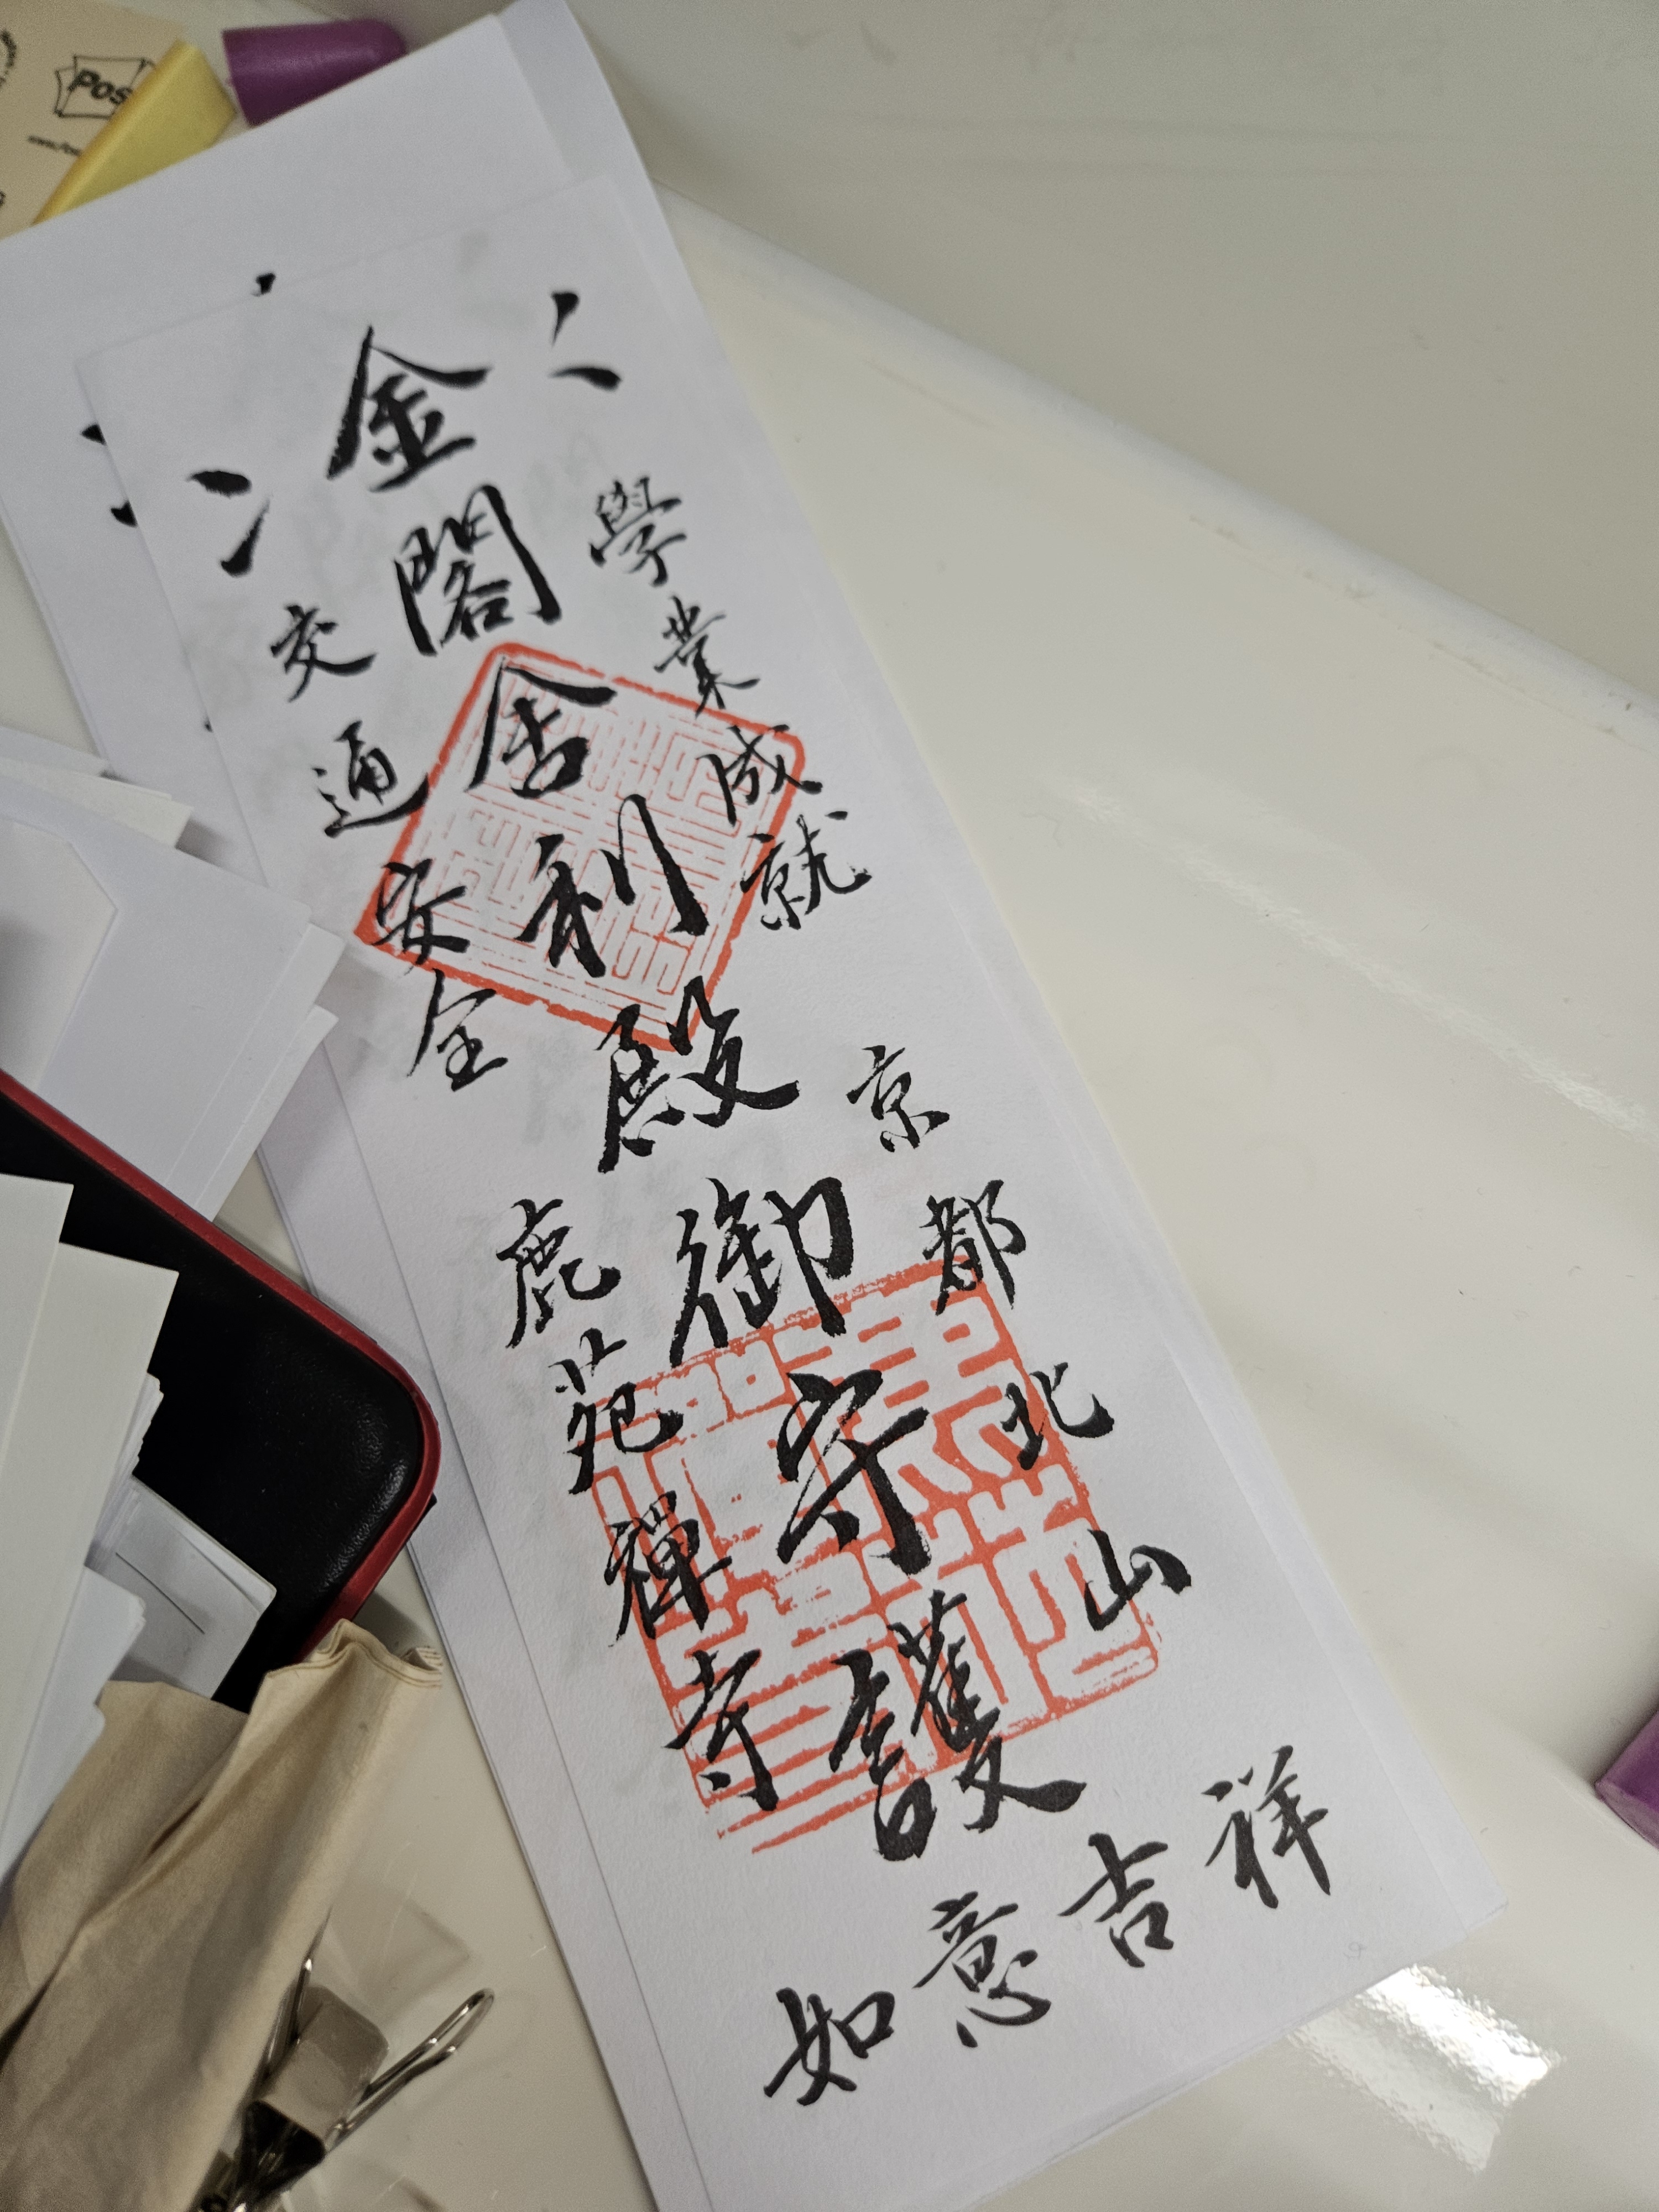 POS
金閣舍利殿御守護
學業成就
交通安全
京都北山
鹿苑禪寺
如意吉祥